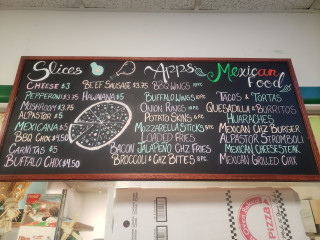 Slices
Cheese $3
Pepperoni $3.75
Mushroom $3.75
Alpastor $5
Mexicana $5
BBQ Chix $4.50
Carnitas $5
Buffalo Chix $4.50
Beef Sausage $3.75
Hawaiiana $5
Apps
BBQ Wings
Buffalo Wings
Onion Rings
Potato Skins
Mozzarella Sticks
Loaded Fries
Bacon Jalapeno Chz Fries
Broccoli & Chz Bites 8 pc.
Mexican
Food
Tacos & Tortas
Quesadilla & Burritos
Huaraches
Mexican Chz Burger
Alpastor Stromboli
Mexican Cheesesteak
Mexican Grilled Chix
PIZZA